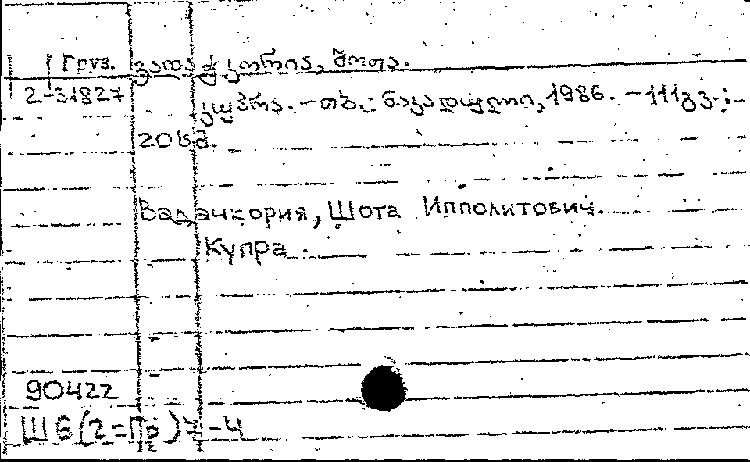 Груз. ვადაჭკორია, შოთა.
2-31827
კუპრა. – თბ.: ნაკადული, 1986. – 111გვ.;
20სმ.
Вадачкория, Шота Ипполитович.
Купра.
90422
Ш6(2=Гр)7-4